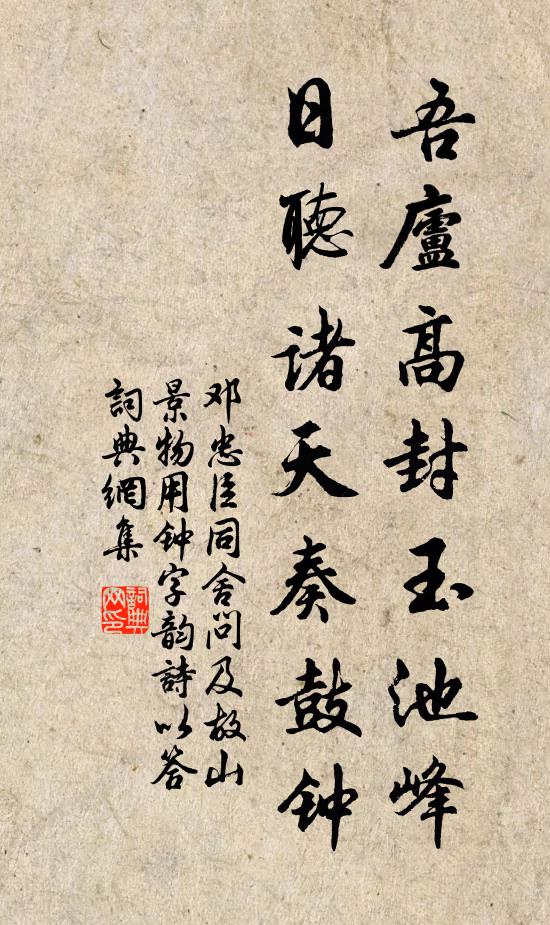 吾廬高封玉池峰
日聽诸天奏鼓钟
邓忠臣同舍问及故山
景物用钟字韵詩以答
詞典網集
詞典网印